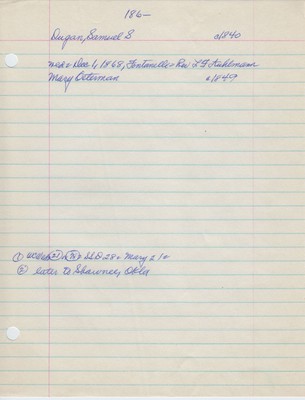 186-
Dugan, Samuel S c1840
Dec 1, 1868, Fontanelle Rev L F
Mary Osterman c1849
① SSD 28 Mary 21
② later to Shawnee, Okla